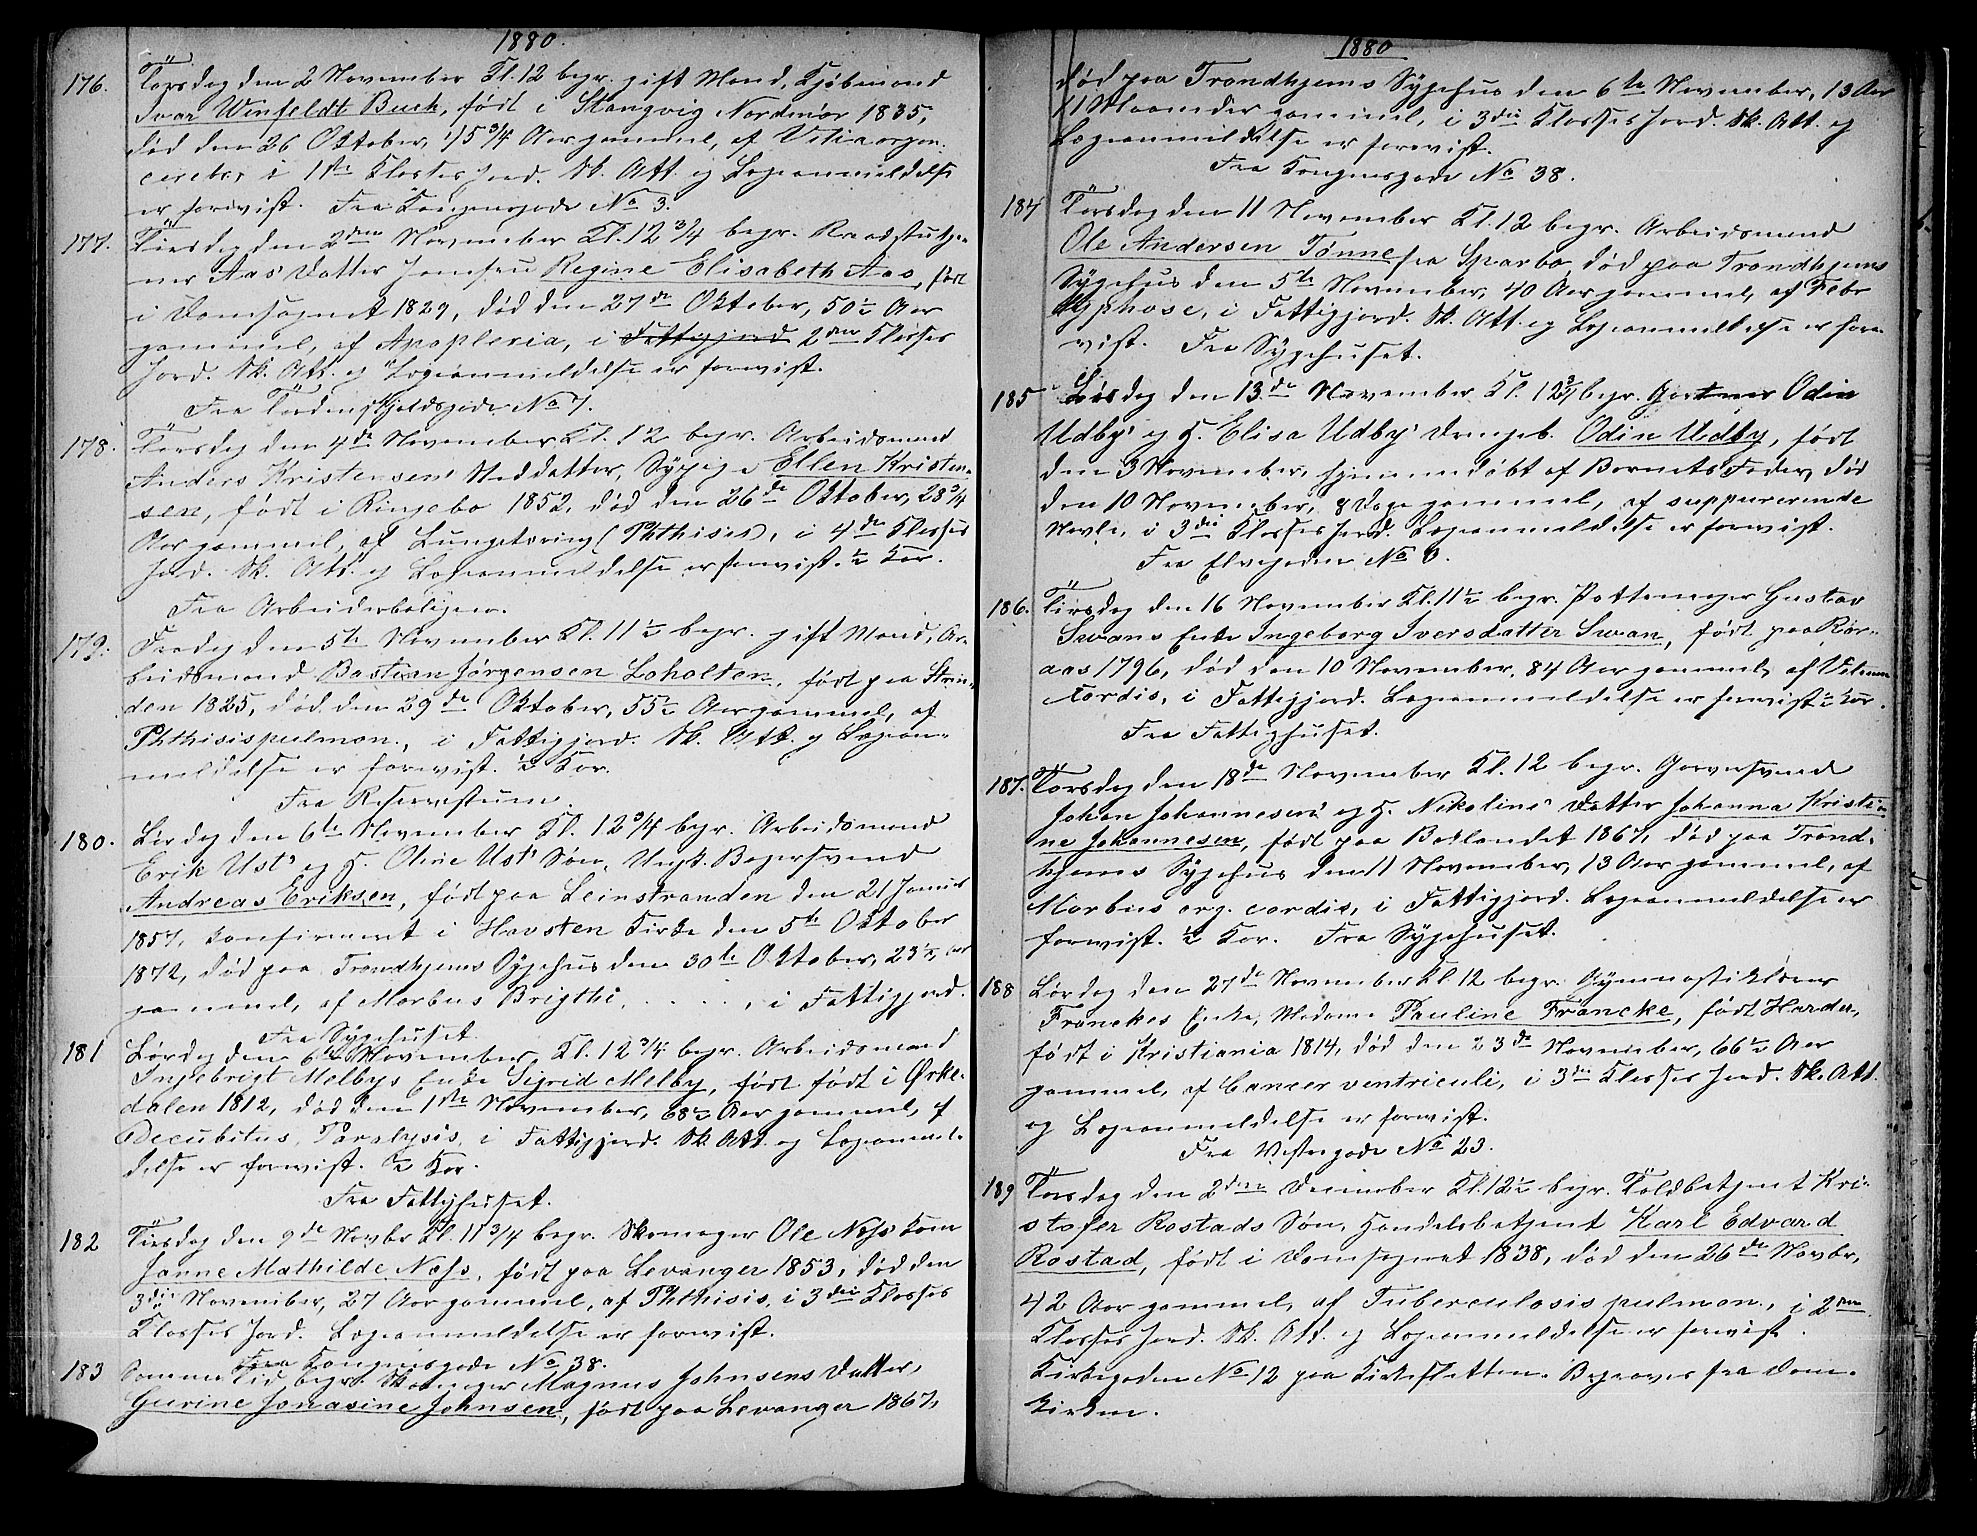 1880.
176. Tirsdag den 2 November Kl. 12 begr. gift Mand, Kjøbmand
Ivar Winfeldt Buck, født i Stangvig Nordmør 1835,
død den 26 Oktober, 45 3/4 Aar gammel, af Vitia organ.
cerebr, i 1ste Klasses Jord. Sk. Att. og Lægeanmeldelse
er forevist. Fra Kongensgade No 3.
177. Tirsdag den 2den November Kl. 12 3/4 begr. Raadstutje-
ner Aas' Datter Jomfru Regine Elisabeth Aas, født
i Domsognet 1829, død den 27de Oktober, 50 1/2 Aar
gammel, af Apoplexia, i Fattigjord 2den Klasses
Jord. Sk. Att. og Lægeanmeldelse er forevist.
Fra Tordenskjoldsgade No 7.
178. Torsdag den 4de November Kl. 12 begr. Arbeidsmand
Anders Kristensens Steddatter, Sypige Ellen Kristen-
sen, født i Ringebo 1852, død den 26de Oktober, 28 3/4
Aar gammel, af Lungetæring (Phthisis), i 4de Klasses
Jord. Sk. Att. og Lægeanmeldelse er forevist. 1/2 Kor.
Fra Arbeiderboligen.
179. Fredag den 5te November Kl. 11 1/2 begr. gift Mand, Ar-
beidsmand Bastian Jørgensen Loholten, født paa Strin-
den 1825, død den 29de Oktober, 55 1/2 Aar gammel, af
Phthisis pulmon., i Fattigjord. Sk. Att. og Lægean-
meldelse er forevist. 1/2 Kor.
Fra Reservestuen.
180. Lørdag den 6te November Kl. 12 3/4 begr. Arbeidsmand
Erik Ust' og H. Oline Ust' Søn, Ungk. Bagersvend
Andreas Eriksen, født paa Leinstranden den 21 Januar
1857, konfirmeret i Havsten Kirke den 5te Oktober
1872, død paa Trondhjems Sygehus den 30te Oktober, 23 1/2 Aar
gammel, af Morbus Brigthi, . . . . , i Fattigjord.
Fra Sygehuset.
181 Lørdag den 6te November Kl. 12 3/4 begr. Arbeidsmand
Ingebrigt Melbys Enke Sigrid Melby, født født i Ørke-
dalen 1812, død den 1ste November, 68 1/2 Aar gammel, af
Decubitus, Paralysis, i Fattigjord. Sk. Att. og Lægeanmel-
delse er forevist. 1/2 Kor.
Fra Fattighuset.
182 Tirsdag den 9de Novbr Kl. 11 3/4 begr. Skomager Ole Næss' Kone
Janne Mathilde Næss, født paa Levanger 1853, død den
3die November, 27 Aar gammel, af Phthisis, i 3die Klasses
Klasses Jord. Lægeanmeldelse er forevist.
Fra Kongensgade No 38.
183 Samme Tid begr. Skomager Magnus Johnsens Datter,
Gurine Jonasine Johnsen, født paa Levanger 1867,
1880
død paa Trondhjems Sygehus den 6te November, 13 Aar
11 Maaneder gammel, i 3die Klasses Jord. Sk. Att. og
Lægeanmeldelse er forevist.
Fra Kongensgade No 38.
184 Torsdag den 11 November Kl. 12 begr. Arbeidsmand
Ole Andersen Tønne fra Sparbo, død paa Trondhjems
Sygehus den 5te November, 40 Aar gammel, af Febr
typhose, i Fattigjord. Sk. Att. og Lægeanmeldelse er fore-
vist. Fra Sygehuset.
185 Lørdag den 13de November Kl. 12 3/4 begr. Gartner Odin
Udby' og H. Elisa Udby' Drengeb. Odin Udby, født
den 3 November, hjemmedøbt af Barnets Fader, død
den 10 November, 8 Dage gammel, af suppurerende
Navle, i 3die Klasses Jord. Lægeanmeldelse er forevist.
Fra Elvegaden No
186. Tirsdag den 16 November Kl. 11 1/2 begr. Pottemager Gustav
Swans Enke Ingeborg Iversdatter Swan, født paa Rør-
aas 1796, død den 10 November, 84 Aar gammel, af Vitium
cordis, i Fattigjord. Lægeanmeldelse er forevist. 1/2 Kor.
Fra Fattighuset.
187. Torsdag den 18de November Kl. 12 begr. Garversvend
Johan Johannesens' og H. Nikolines' Datter Johanna Kristi-
ne Johannesen, født paa Baklandet 1867, død paa Trond-
hjems Sygehus den 11 November, 13 Aar gammel, af
Morbus org. cordis, i Fattigjord. Lægeanmeldelse er
forevist. 1/2 Kor. Fra Sygehuset.
188 Lørdag den 27de November Kl. 12 begr. Gymnastiklærer
Franckes Enke, Madame Pauline Francke, født Harder,
født i Kristiania 1814, død den 23de November, 66 1/2 Aar
gammel, af Cancer ventriculi, i 3die Klasses Jord. Sk. Att.
og Lægeanmeldelse er forevist.
Fra Vestergade No 23.
189 Torsdag den 2den December Kl. 12 1/2 begr. Toldbetjent Kri-
stofer Rostads Søn, Handelsbetjent Karl Edvard
Rostad, født i Domsognet 1838, død den 26de Novbr,
42 Aar gammel, af Tuberculosis pulmon., i 2den
Klasses Jord. Sk. Att. og Lægeanmeldelse er forevist.
Kirkegaden No 12 paa Kirkesletten. Begraves fra Dom-
kirken.